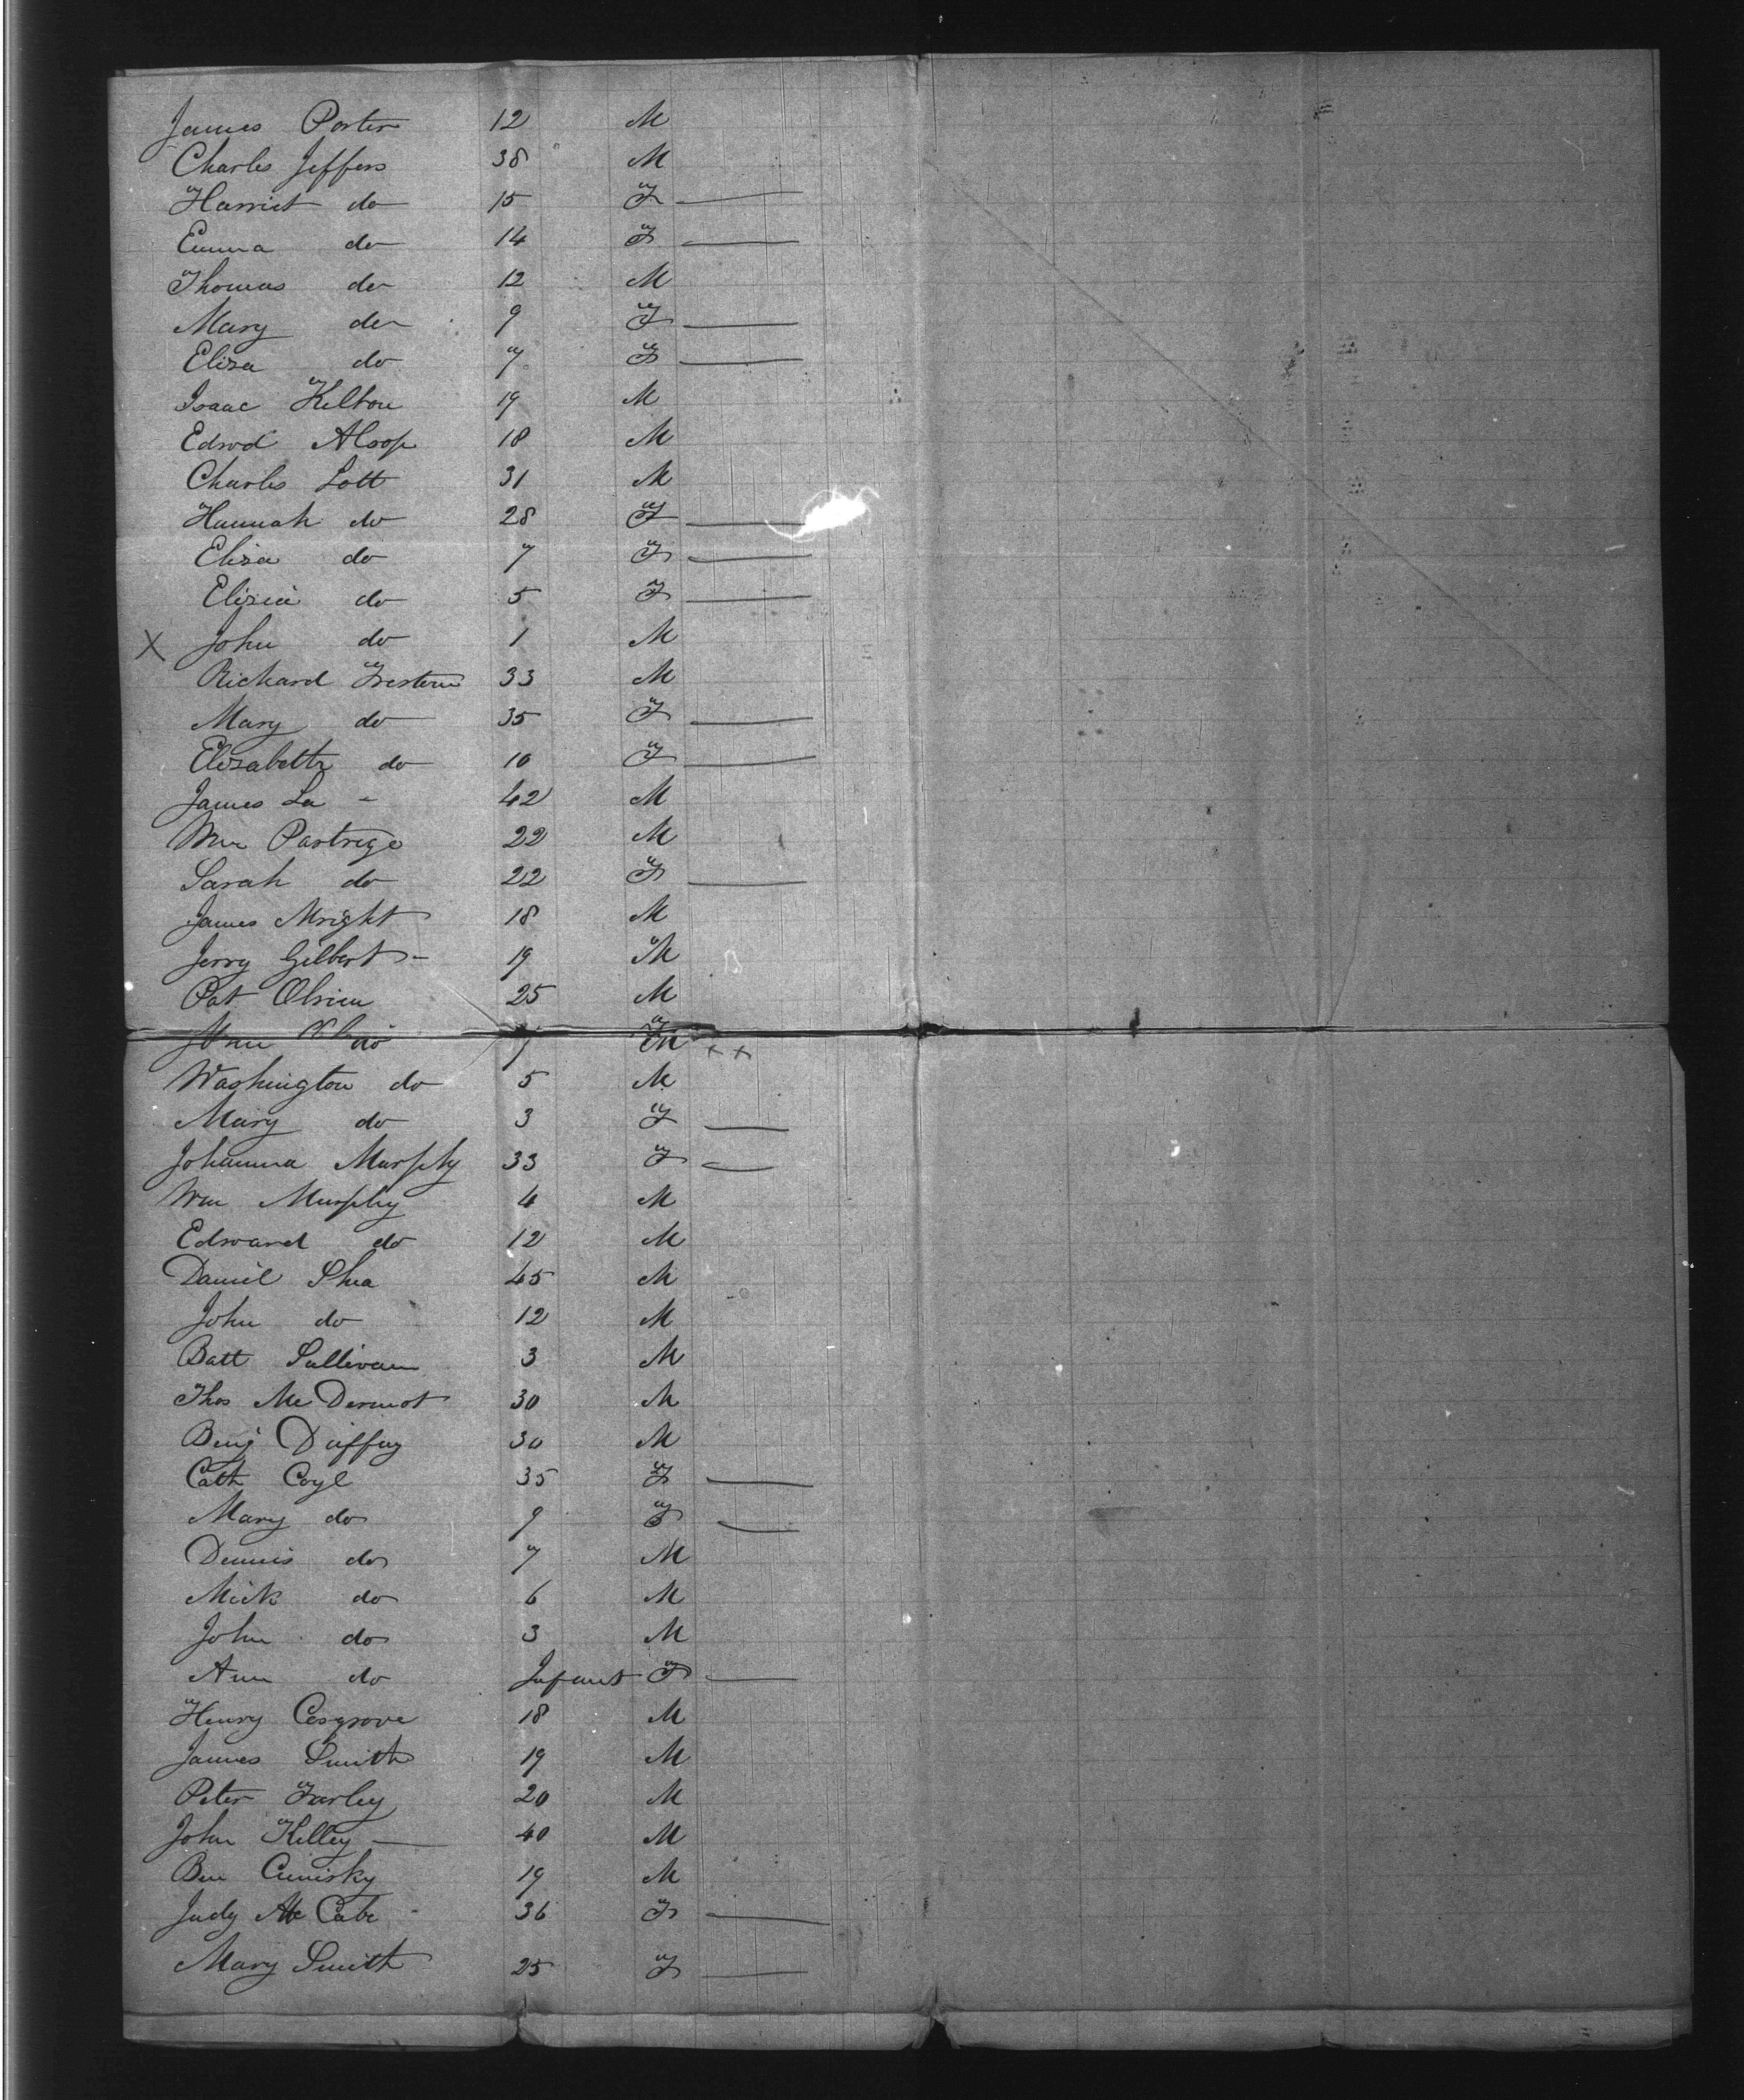 James Porter 12 M
Charles Jeffers 38 M
Harriet do 15 F
Emma do 14 F
Thomas do 12 M
Mary do 9 F
Eliza do 7 F
Isaac Kelton 19 M
Edwd Alsop 18 M
Charles Lott 31 M
Hannah do 28 F
Eliza do 7 F
Elizia do 5 F
X John do 1 M
Richard 33 M
Mary do 35 F
Elizabeth do 10 F
James La - 42 M
Wm Partrige 22 M
Sarah do 22 F
James Wright 18 M
Jerry Gilbert - 19 M
Pat Obrien 25 M
do M ++
Washington do 5 M
Mary do 3 F
Johanna Murphy 33 F
Wm Murphy 4 M
Edward do 12 M
Daniel Shea 45 M
John do 12 M
Batt Sullivan 3 M
Thos Mc Dermot 30 M
Benj Duffey 30 M
Cath Coyl 35 F
Mary do 9 F
Dennis do 7 M
Mick do 6 M
John do 3 M
Ann do Infant F
Henry Cosgrove 18 M
James Smith 19 M
Peter Farley 20 M
John Kelley 40 M
Ben 19 M
Judy Mc Cabe 36 F
Mary Smith 25 F